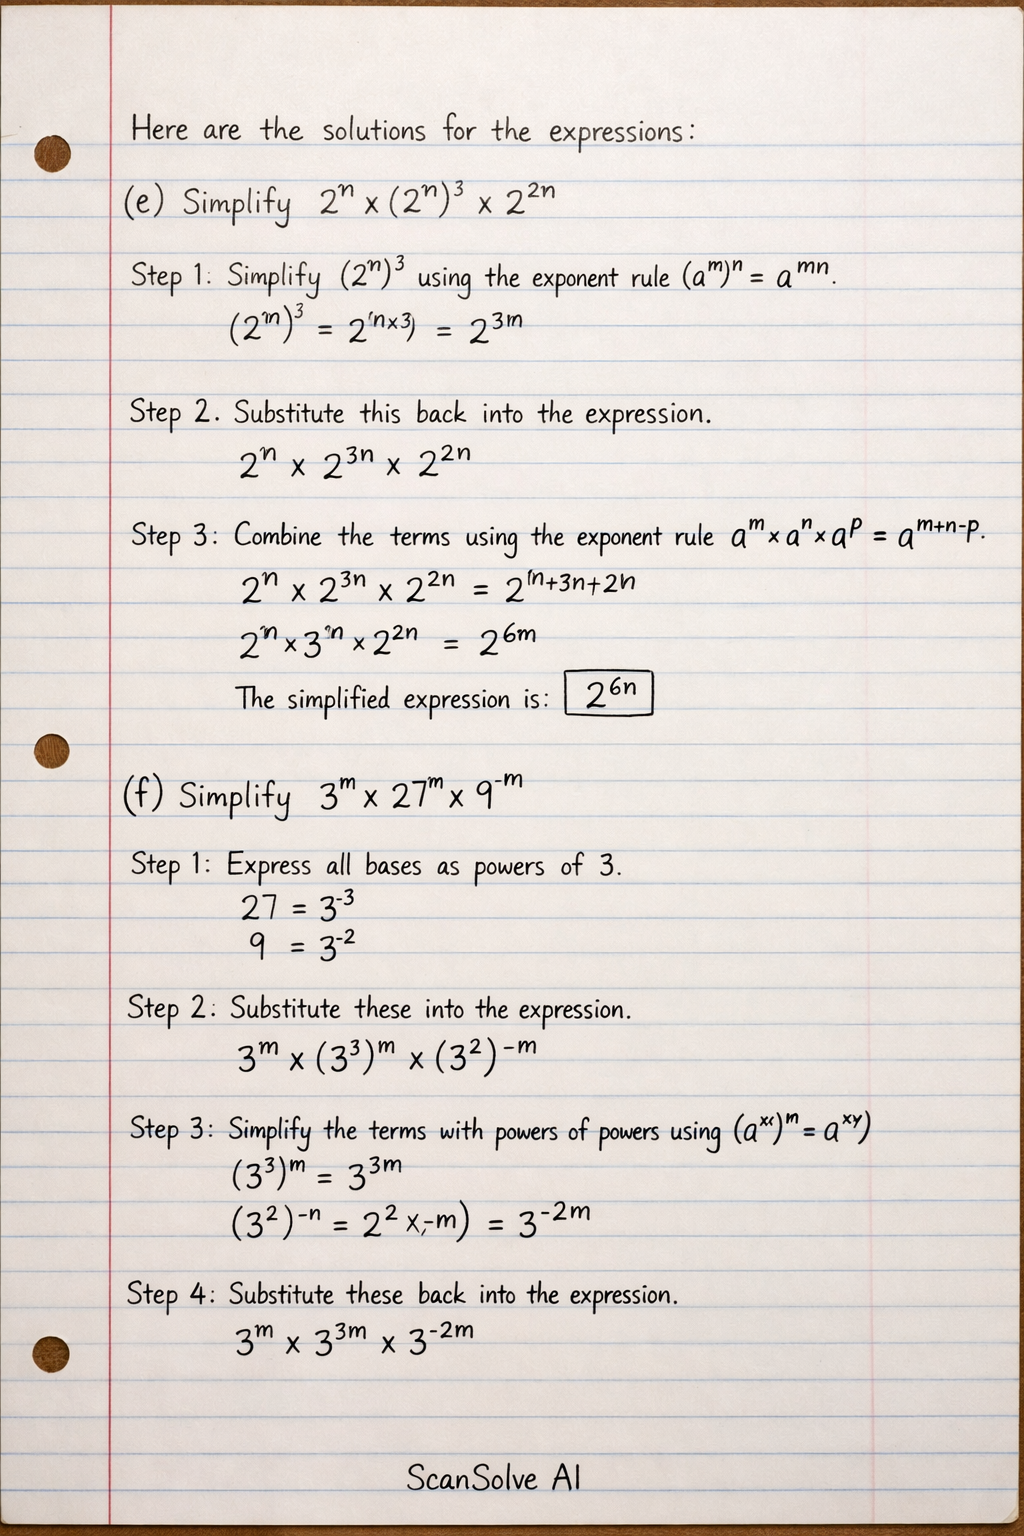 Here are the solutions for the expressions:
(e) Simplify 2ⁿ × (2ⁿ)³ × 2²ⁿ
Step 1: Simplify (2ⁿ)³ using the exponent rule (aᵐ)ⁿ = aᵐⁿ.
(2ᵐ)³ = 2⁽ⁿˣ³⁾ = 2³ᵐ
Step 2. Substitute this back into the expression.
2ⁿ × 2³ⁿ × 2²ⁿ
Step 3: Combine the terms using the exponent rule aᵐ × aⁿ × aᵖ = aᵐ⁺ⁿ⁻ᵖ.
2ⁿ × 2³ⁿ × 2²ⁿ = 2⁽ⁿ⁺³ⁿ⁺²ⁿ
2ⁿ × 3ⁿ × 2²ⁿ = 2⁶ᵐ
The simplified expression is: 2⁶ⁿ
(f) Simplify 3ᵐ × 27ᵐ × 9⁻ᵐ
Step 1: Express all bases as powers of 3.
27 = 3⁻³
9 = 3⁻²
Step 2: Substitute these into the expression.
3ᵐ × (3³)ᵐ × (3²)⁻ᵐ
Step 3: Simplify the terms with powers of powers using (aˣ)ᵐ = aˣʸ)
(3³)ᵐ = 3³ᵐ
(3²)⁻ⁿ = 2² ×,-m) = 3⁻²ᵐ
Step 4: Substitute these back into the expression.
3ᵐ × 3³ᵐ × 3⁻²ᵐ
ScanSolve AI